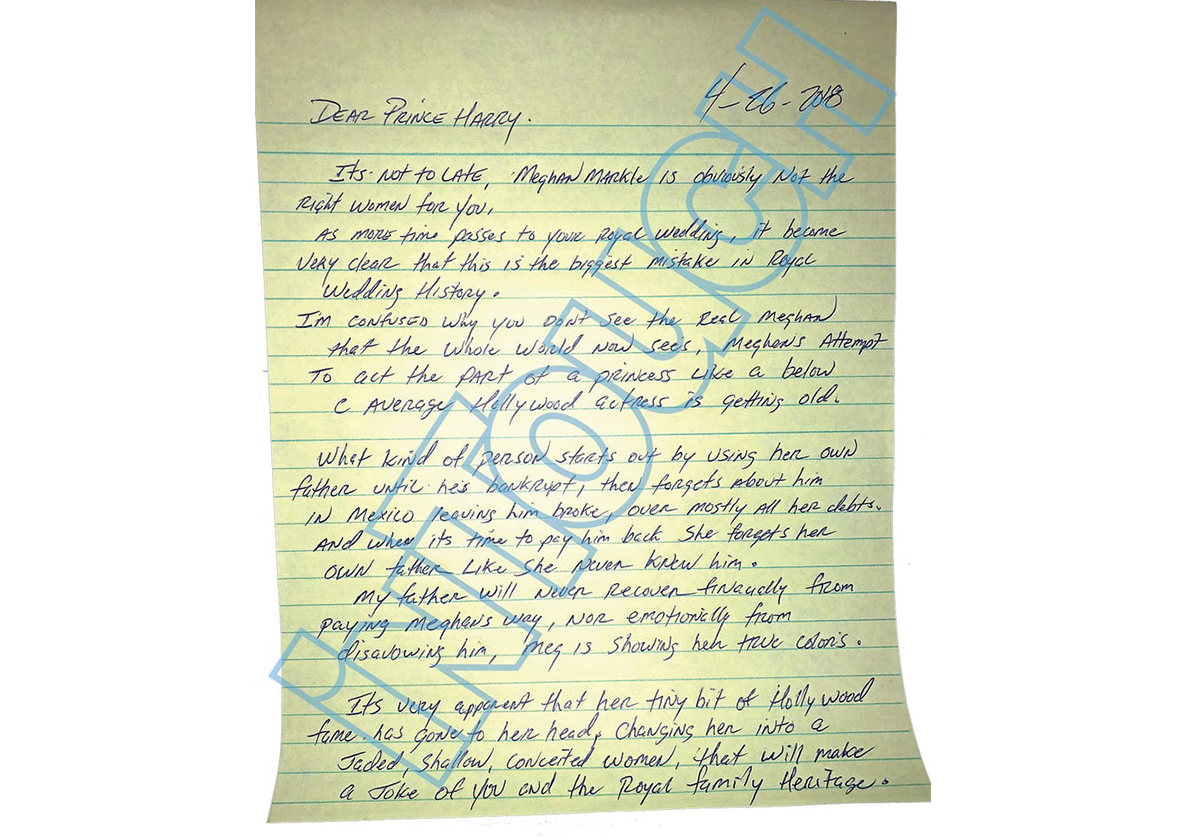 4-26-2018
DEAR PRINCE HARRY.
Its not to LATE, Meghan MARKle is obviously Not the
Right women for you,
AS MORE time passes to your Royal Wedding, it became
Very clear that this is the biggest mistake in Royal
Wedding History.
I'm confused why you DON't See the Real Meghan
that the Whole World Now sees, Meghan's Attempt
To act the PART of a princess Like a below
C AVERAGE Hollywood actress is getting old.
What kind of person starts out by using her own
father until he's bankrupt, then forgets About him
IN Mexico leaving him broke, over mostly All her debts.
AND when its time to pay him back She forgets her
OWN father Like She Never knew him.
My father will Never Recover finacially from
paying Meghan's way, NOR emotionally from
disavowing him, Meg is Showing her TRUE colors.
It's very apparent that her tiny bit of Hollywood
fame has Gone to her head, Changing her into a
Jaded, Shallow, conceited women, that will make
a Joke of you and the Royal family Heritage.
INTOUCH